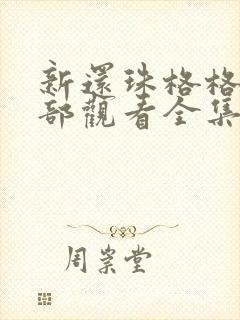 新還珠格格
部觀看全集
周崇堂